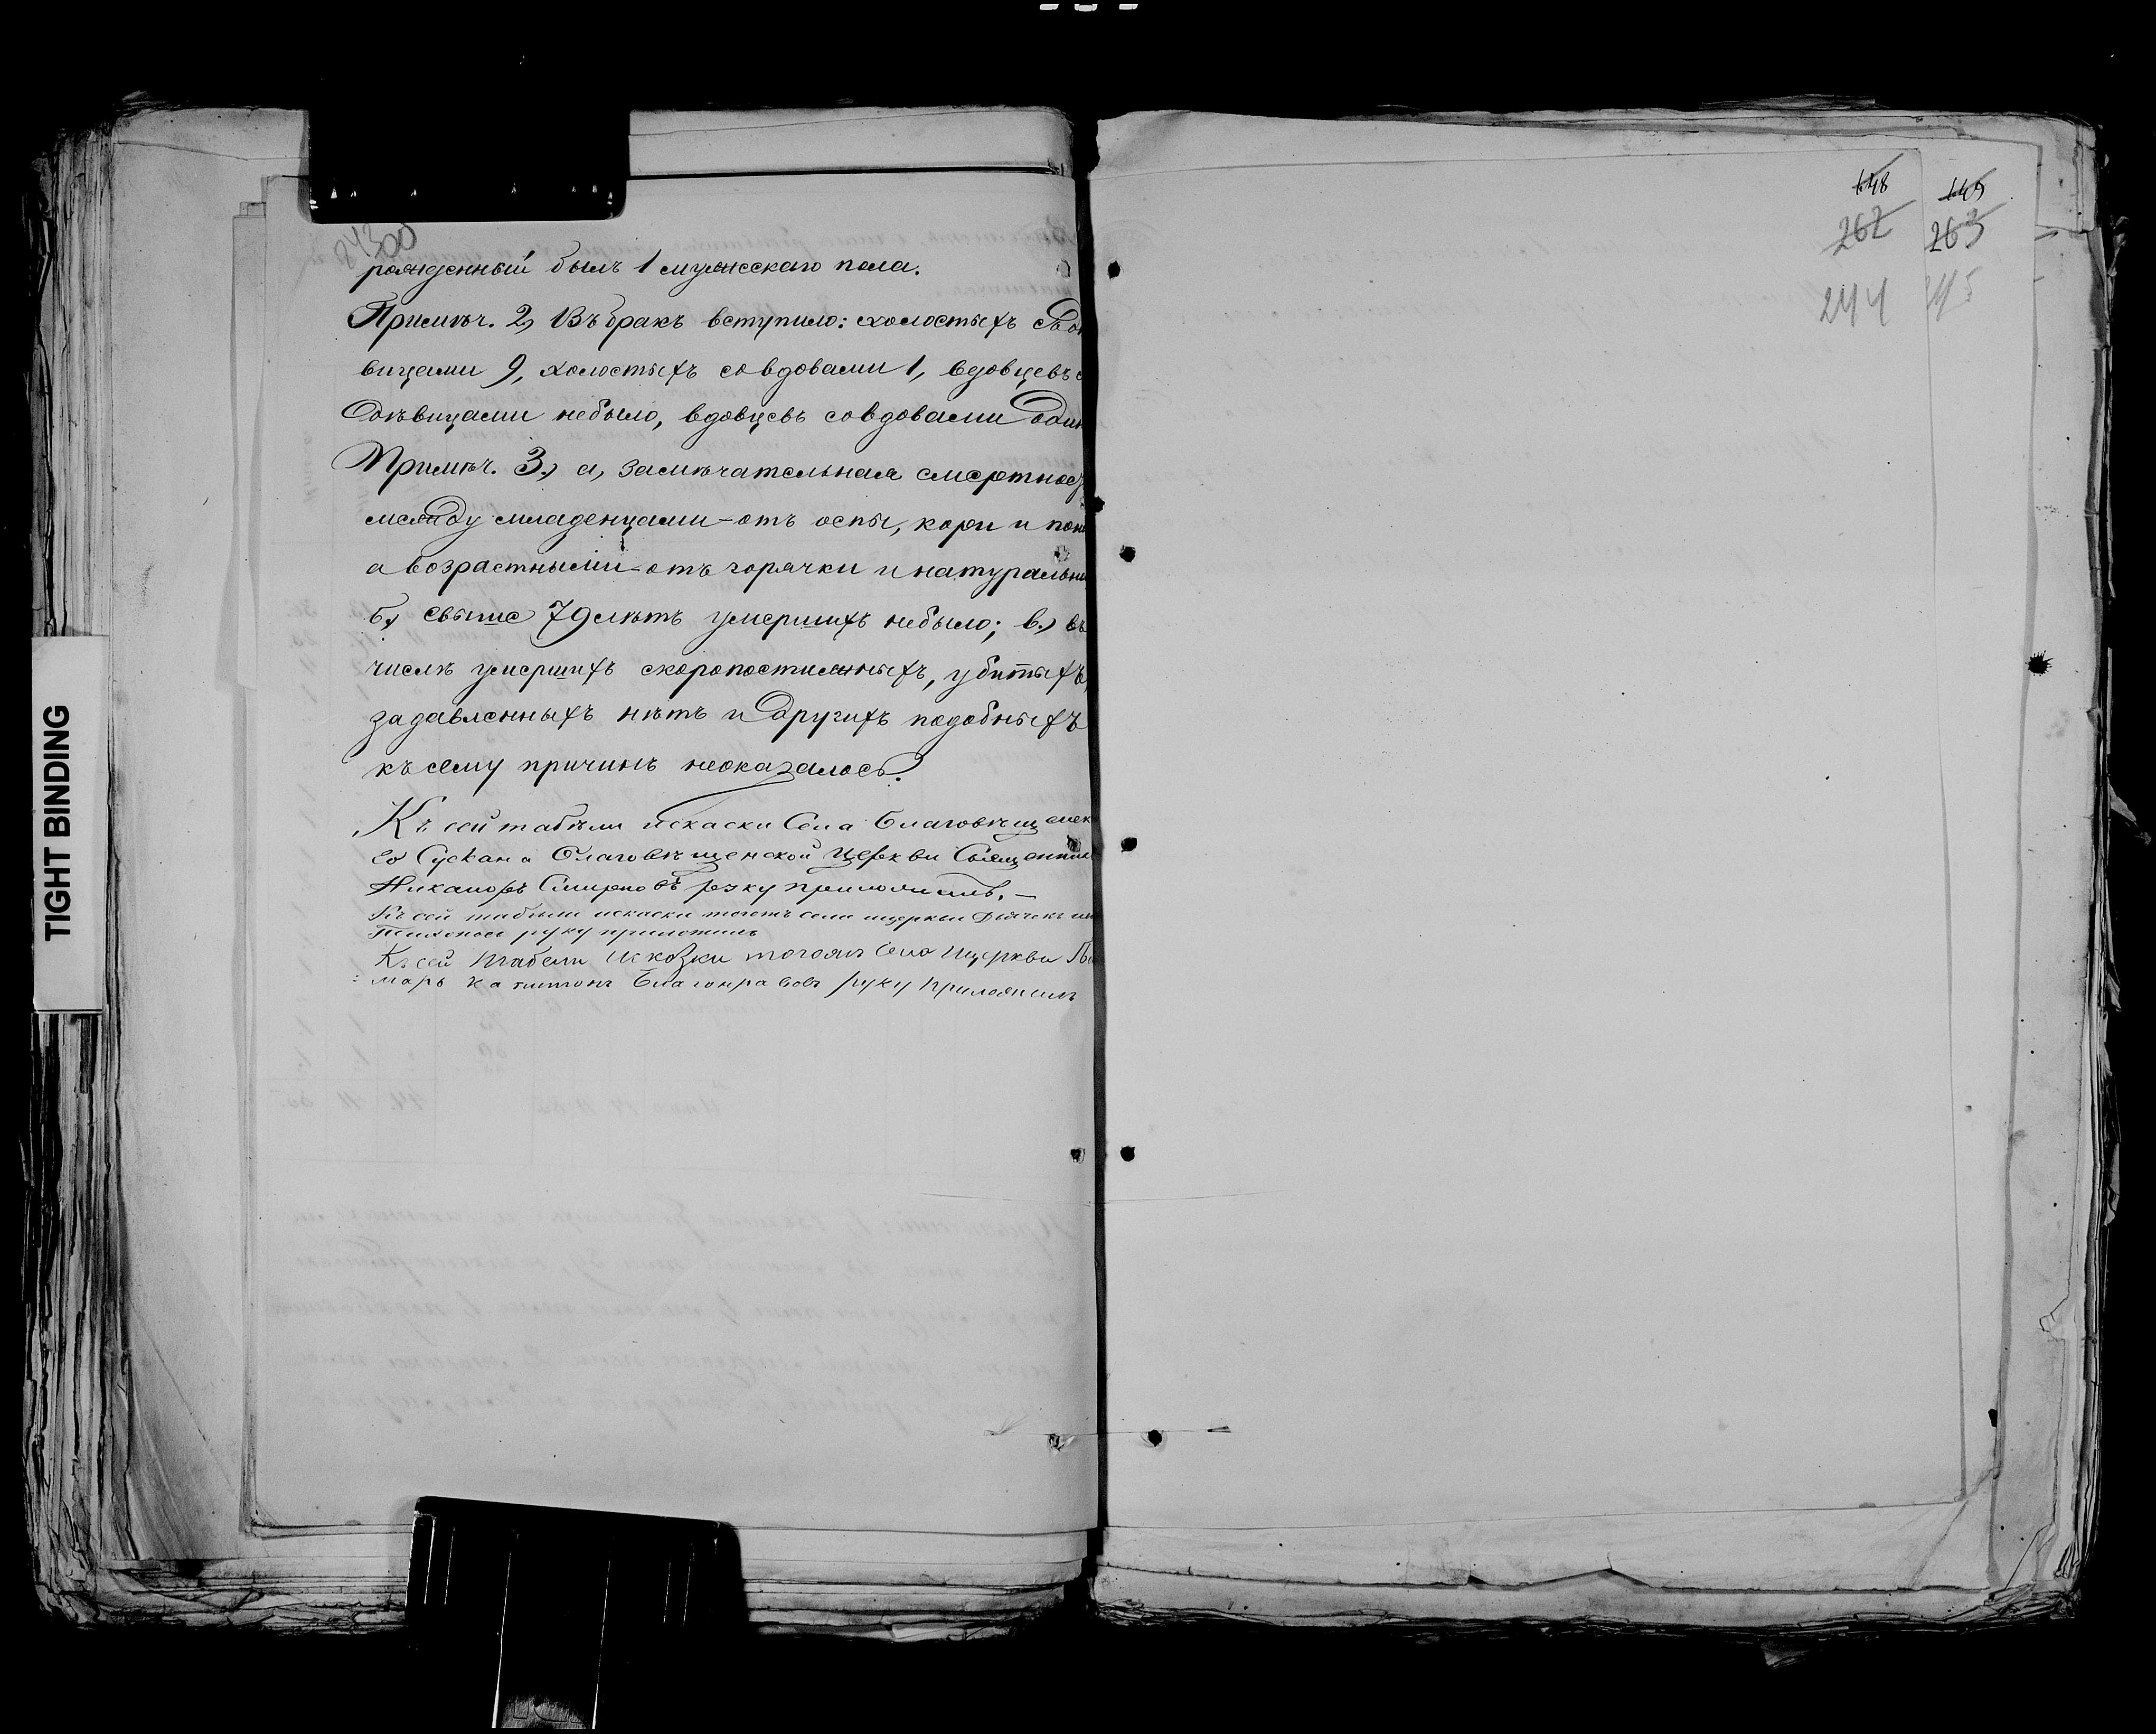 TIGHT BINDING
рожденный былъ 1 мужескаго пола.
Примѣч. 2, Въ бракъ вступило: холостыхъ съ дѣ
вицами 9, холостыхъ со вдовами 1, вдовцевъ с
дѣвицами небыло, вдовцевъ со вдовами один
Примѣч. 3.) а, замѣчательная смертнос
между младенцами - отъ оспы, кори и пон
а возрастными - отъ горячки и натуральн
б.) Свыше 79 лѣтъ умершихъ небыло; в.) въ
числѣ умершихъ скоропостижныхъ, убитыхъ,
задавленныхъ нѣтъ и другихъ подобныхъ
къ сему причинъ неоказалось.
Къ сей табели исказки Села Благовѣщенск
Благовѣщенской Церкви Священник
Никаноръ Смирновъ руку приложилъ. —
Къ сей табели исказки тогожъ села ицеркви Дьячекъ
руку приложилъ
Къ сей табели исказки тогожъ Села ицеркви По
марь Капитонъ Благонравовъ руку приложилъ
648 649
262 263
244 245